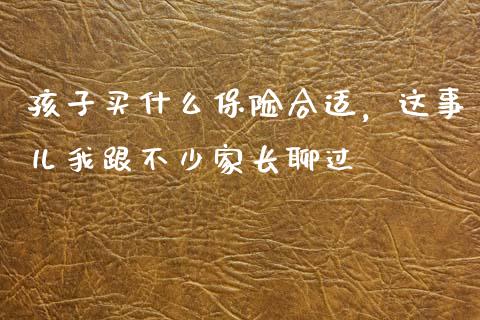 孩子买什么保险合适，这事
儿我跟不少家长聊过